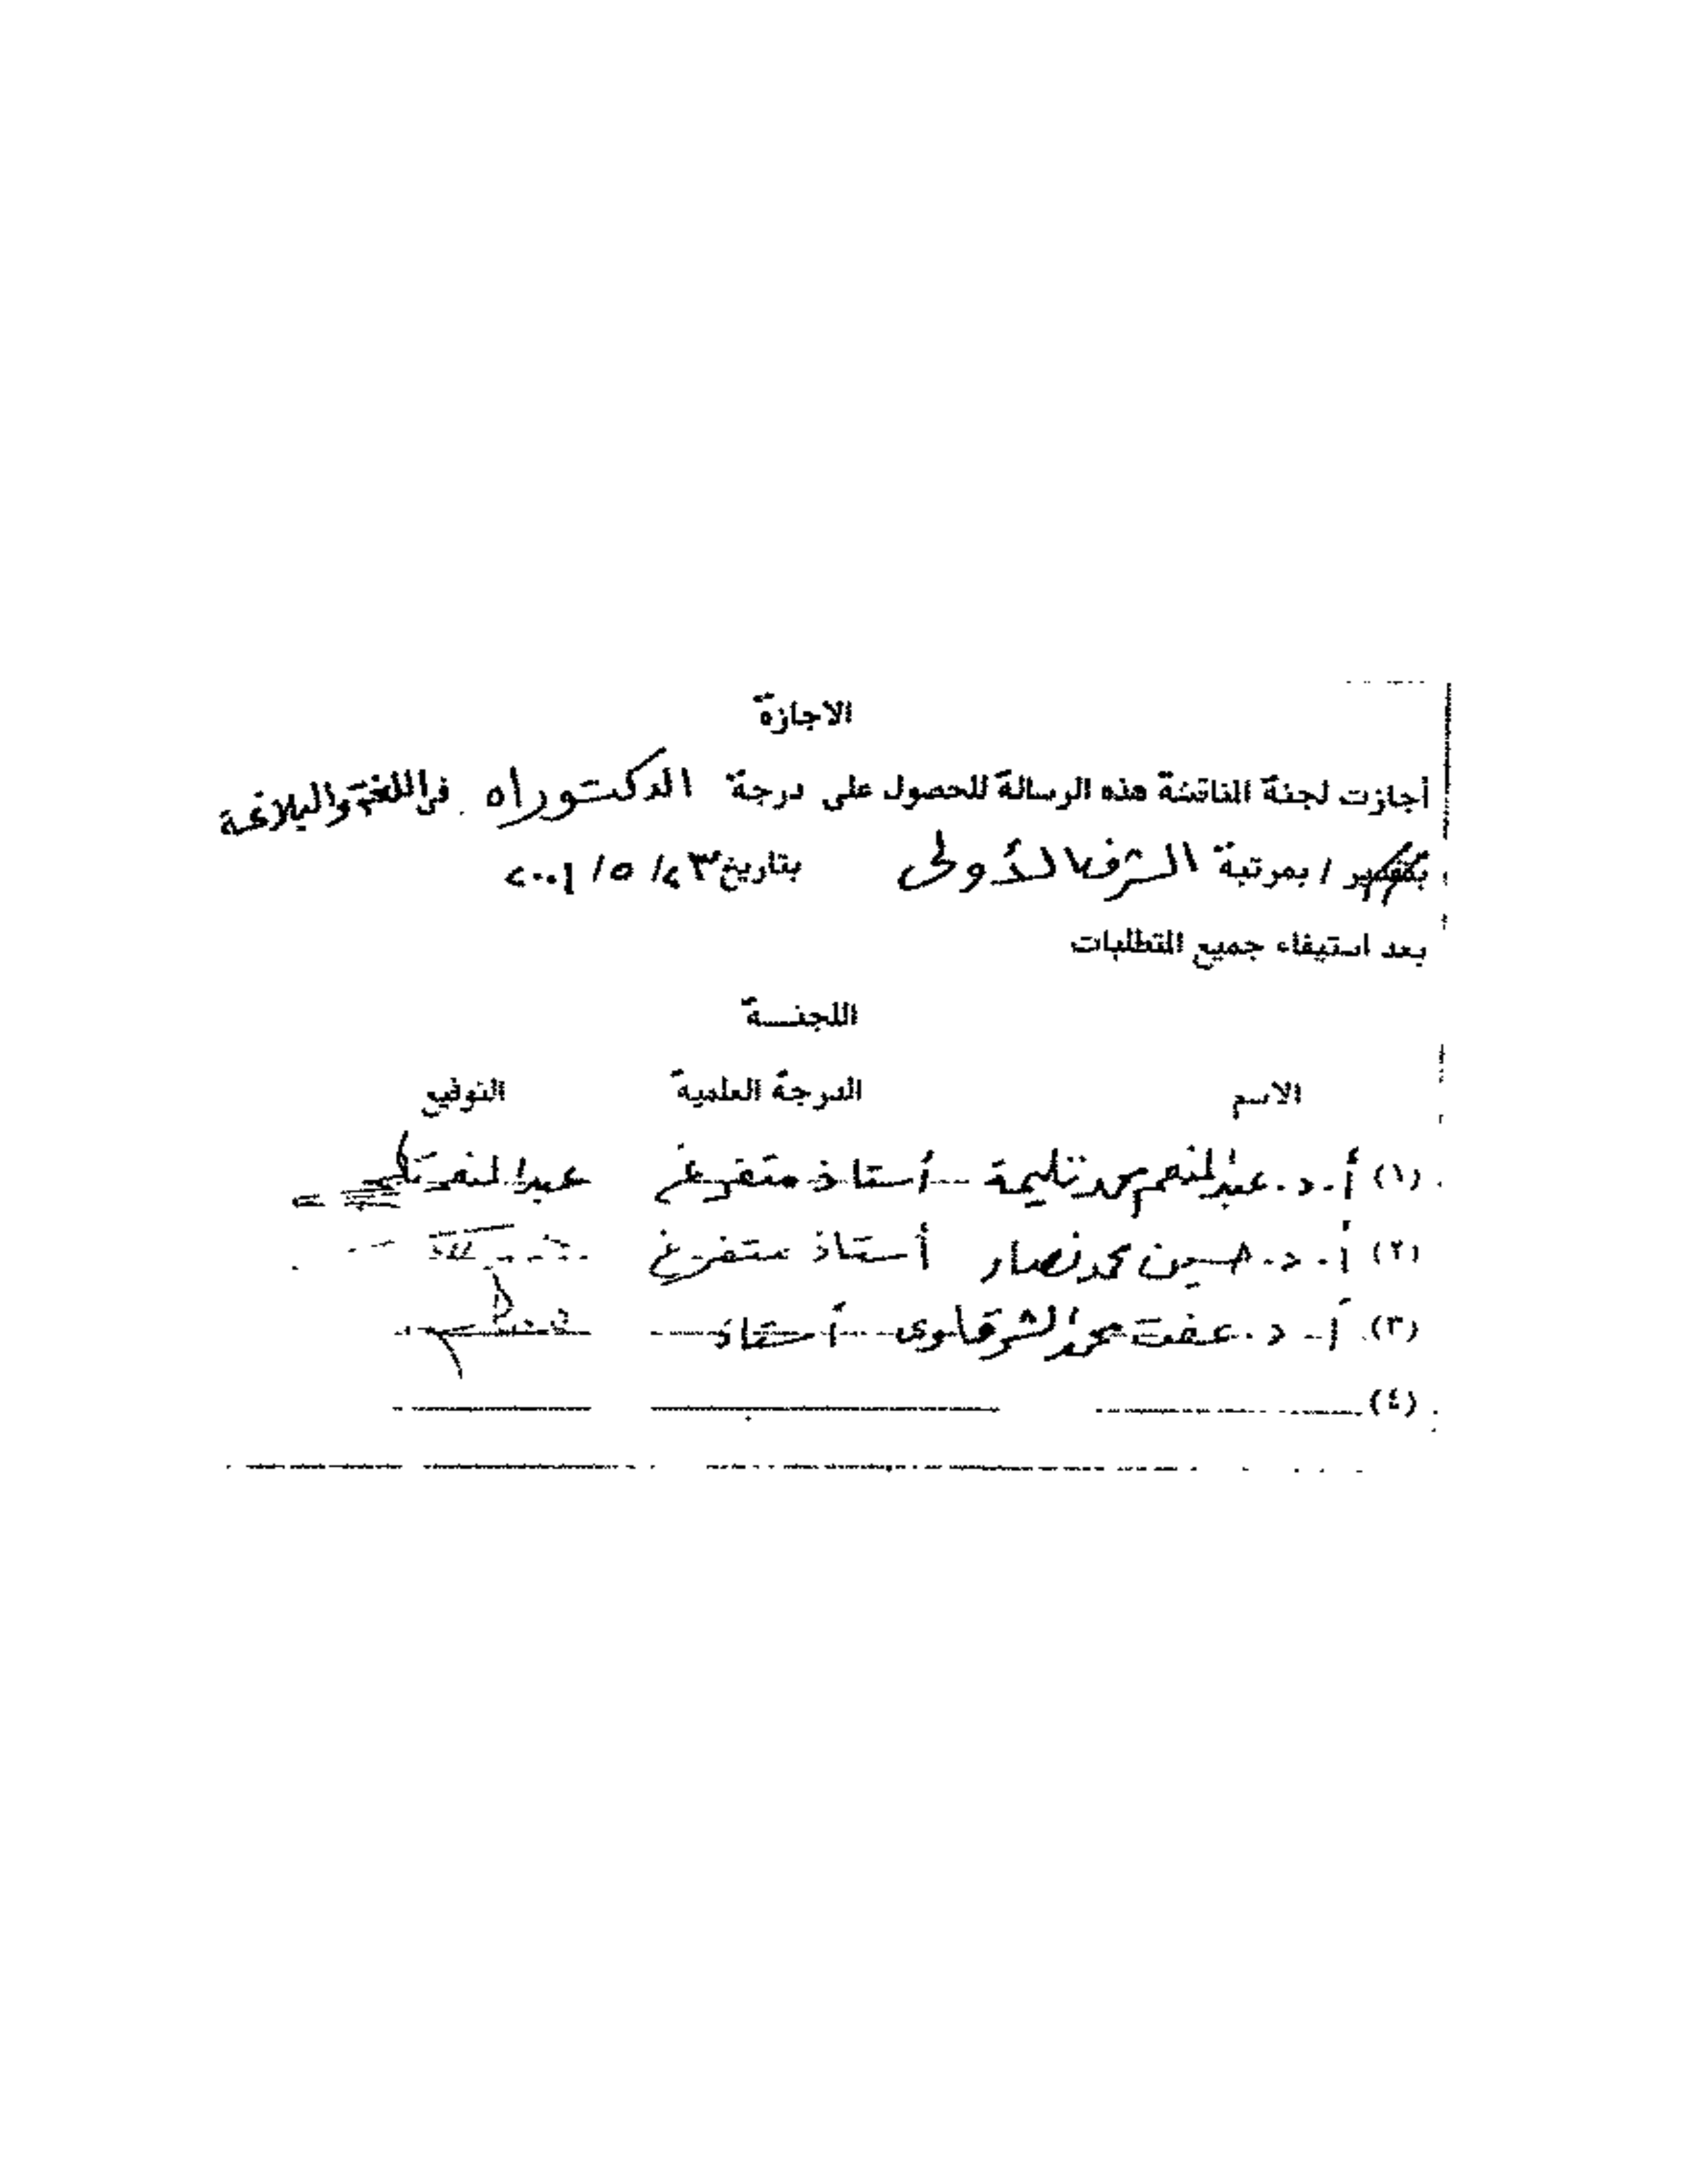 الاجازة
أجازت لجنة المناقشة هذه الرسالة للحصول على درجة الدكتوراه في اللغة والبلاغة
بتقدير / بمرتبة الشرف الأولى بتاريخ ٢٣ / ٥ / ٢٠٠١
بعد استيفاء جميع المتطلبات
اللجنـــة
الاسم الدرجة العلمية التوقيع
(١) أ. د. عبد المنعم محمد تليمة أستاذ متفرغ عبد المنعم تليمة
(٢) أ. د. حسين محمد نصار أستاذ متفرغ
(٣) أ. د. عفت محمد الشرقاوى أستاذ
(٤)